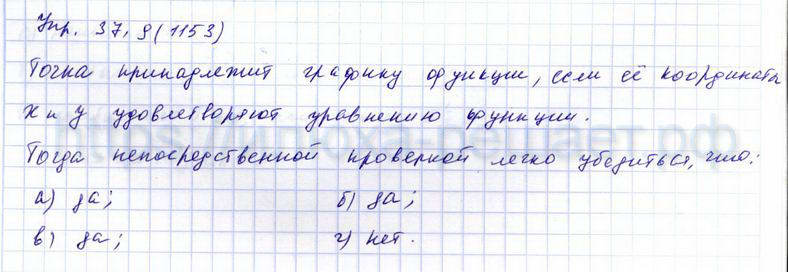 Упр. 37.9(1153)
Точка принадлежит графику функции, если её координаты
x и y удовлетворяют уравнению функции.
Тогда непосредственной проверкой легко убедиться, что:
а) да; б) да;
в) да; г) нет.